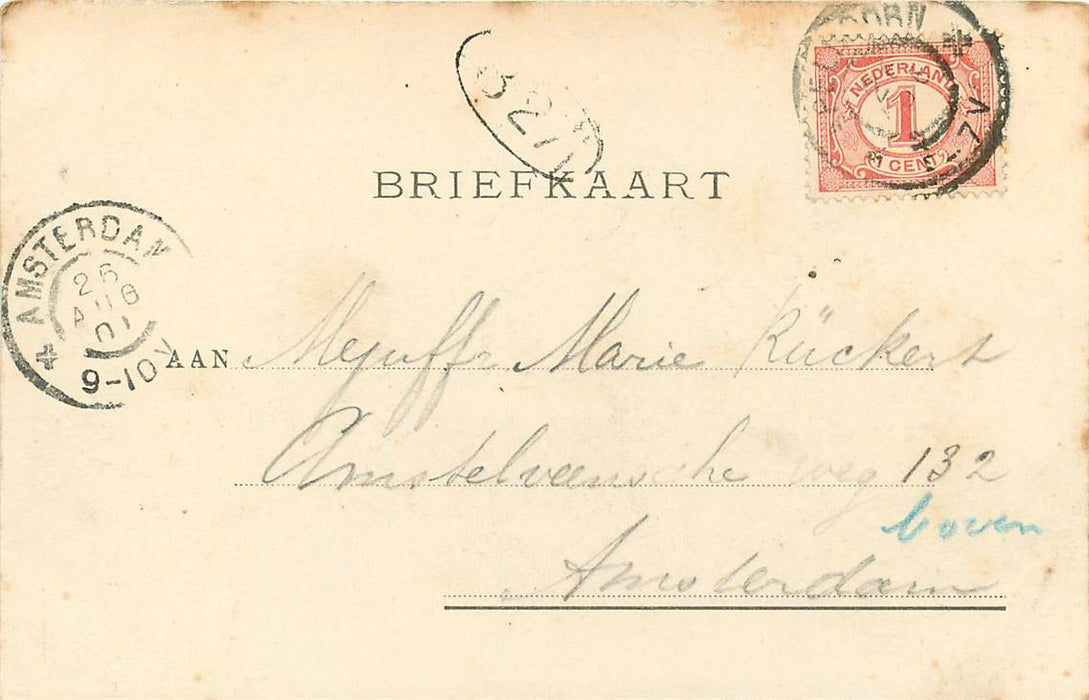 NEDERLAND
1
1 CENT
7V
327
BRIEFKAART
AMSTERDAM
26
AUG
01
9-10V
AAN Mejuffr Marie Rückert
Amstelveensche weg 132
boven
Amsterdam